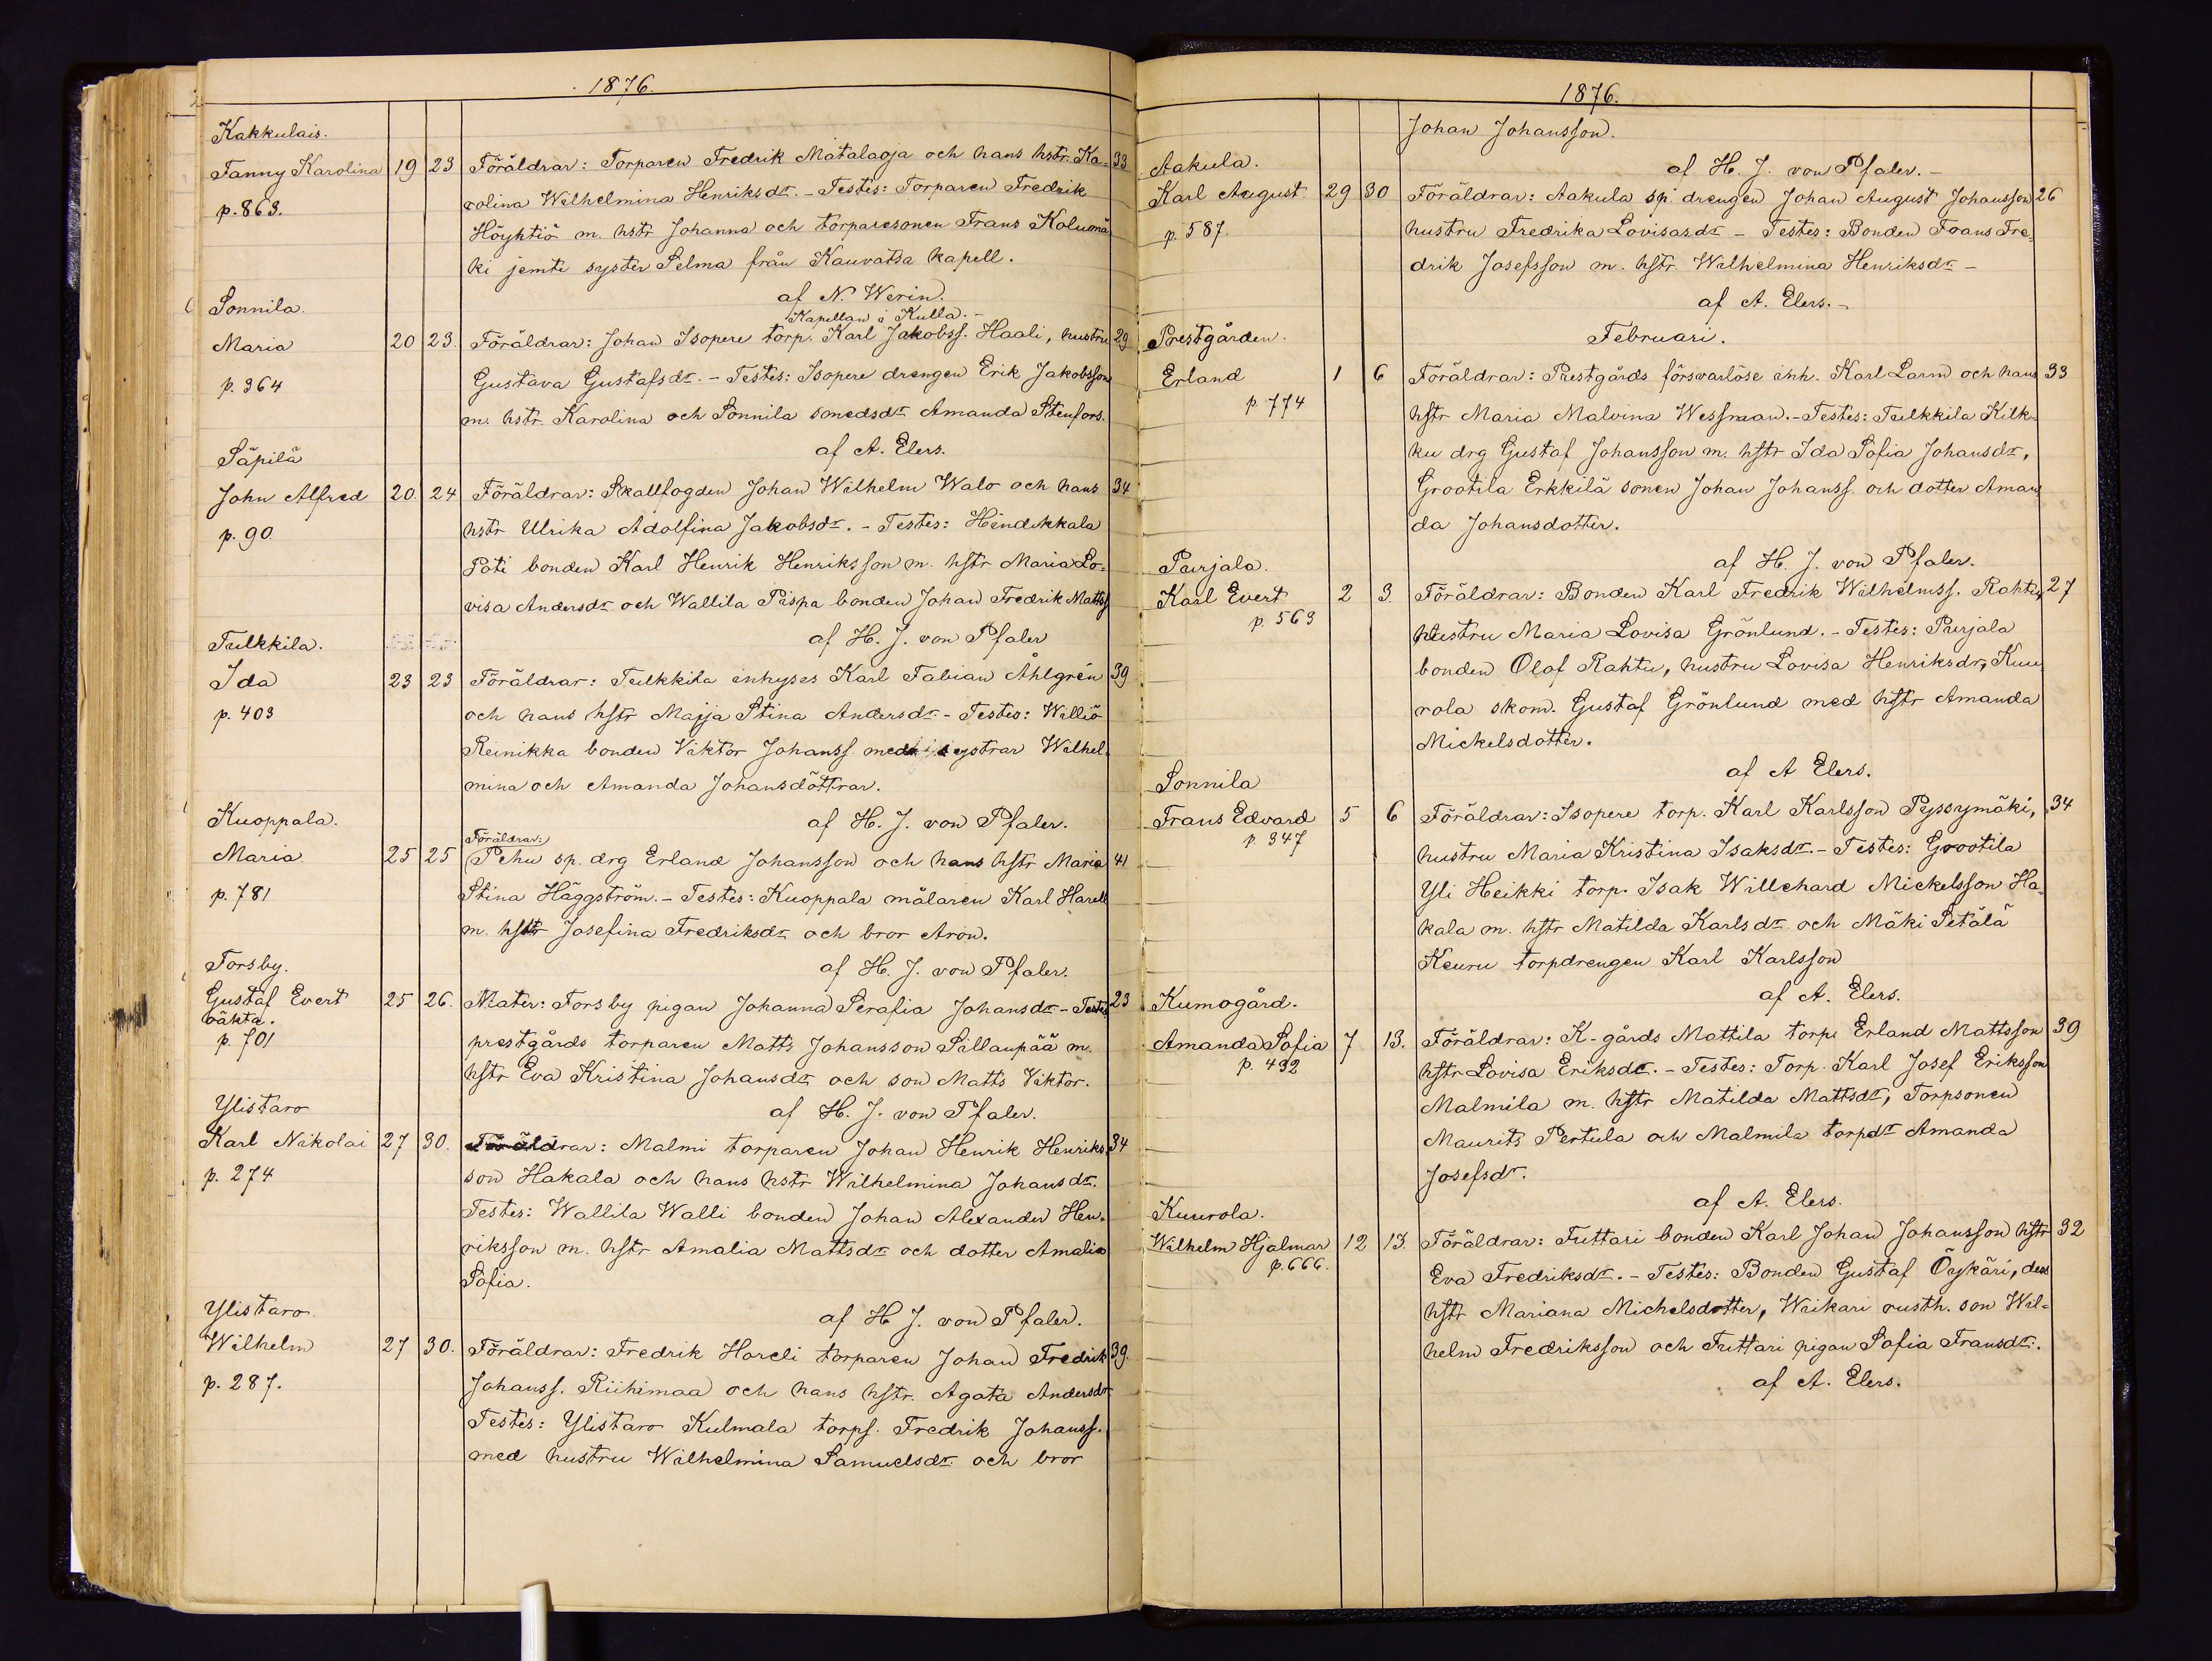 1876.
Kakkulais.
Fanny Karolina 19 23 Föräldrar: Torparen Fredrik Matalaoja och hans hstr. Ka= 33
p. 863. rolina Wilhelmina Henriksdr. - Testes: Torparen Fredrik
Höyktiö m. hstr Johanna och torparesonen Frans Kolumä
ki jemte syster Selma från Kauvatsa kapell.
af N. Werin.
Kapellan i Kulla. -
Sonnila.
Maria 20 23. Föräldrar: Johan Isopere torp. Karl Jakobss. Haali, hustru 29
p. 364 Gustava Gustafsdr. - Testes: Isopere drengen Erik Jakobsson
m. hstr. Karolina och Sonnila smedsdr Amanda Stenfors.
af A. Elers.
Säpilä
John Alfred 20. 24 Föräldrar: Skallfogden Johan Wilhelm Walo och hans 34
p. 90 hstr Ulrika Adolfina Jakobsdr. - Testes: Hindikkala
Poti bonden Karl Henrik Henriksson m. hstr Maria Lo=
visa Andersdr och Wallila Pispa bonden Johan Fredrik Mattss
af H. J. von Pfaler
Tulkkila.
Ida 23 23 Föräldrar: Tulkkila inhyses Karl Fabian Åhlgrén 39
p. 403 och hans hstr Majja Stina Andersdr - Testes: Williö
Reinikka bonden Viktor Johanss. med systrar Wilhel=
mina och Amanda Johansdöttrar.
af H. J. von Pfaler.
Kuoppala.
Föräldrar:
Maria 25 25 Pehu sp. drg Erland Johansson och hans hstr Maria 41
p. 781 Stina Häggström. - Testes: Kuoppala målaren Karl Harell
m. hstr Josefina Fredriksdr och bror Aron.
af H. J. von Pfaler.
Forsby.
Gustaf Evert 25 26. Mater: Forsby pigan Johanna Serafia Johansdr - Testes 23
oäkta.
p. 701 prestgårds torparen Matts Johansson Sillanpää m.
hstr Eva Kristina Johansdr och son Matts Viktor.
af H. J. von Pfaler.
Ylistaro
Karl Nikolai 27 30. Föräldrar: Malmi torparen Johan Henrik Henriks 34
p. 274 son Hakala och hans hstr Wilhelmina Johansdr.
Testes: Wallila Walli bonden Johan Alexander Hen=
riksson m. hstr Amalia Mattsdr och dotter Amalia
Sofia.
af H J. von Pfaler.
Ylistaro
Wilhelm 27 30. Föräldrar: Fredrik Horeli torparen Johan Fredrik 39.
p. 287. Johanss. Riihimaa och hans hstr. Agata Andersdr
Testes: Ylistaro Kulmala torps. Fredrik Johanss.
med hustru Wilhelmina Samuelsdr och bror
1876.
Johan Johansson.
af H. J. von Pfaler. -
Aakula.
Karl August 29 30 Föräldrar: Aakula sp. drengen Johan August Johansson 26
p. 587. hustru Fredrika Lovisasdr - Testes: Bonden Frans Fre=
drik Josefsson m. hstr Wilhelmina Henriksdr -
af A. Elers. -
Februari.
Prestgården.
Erland 1 6 Föräldrar: Prestgårds försvarlöse inh. Karl Larm och hans 33
p. 774 hstr Maria Malvina Wessman. - Testes: Tulkkila Kilk=
ku drg Gustaf Johansson m. hstr Ida Sofia Johansdr,
Grootila Erkkilä sonen Johan Johanss. och dotter Aman
da Johansdotter.
af H. J. von Pfaler.
Purjala.
Karl Evert 2 3. Föräldrar: Bonden Karl Fredrik Wilhelmss. Rahtu, 27
p. 563 hustru Maria Lovisa Grönlund. - Testes: Purjala
bonden Olof Rahtu, hustru Lovisa Henriksdr, Kuu
rola skom. Gustaf Grönlund med hstr Amanda
Mickelsdotter.
af A Elers.
Sonnila
Frans Edvard 5 6 Föräldrar: Isopere torp. Karl Karlsson Pyssymäki, 34
p. 347 hustru Maria Kristina Isaksdr. - Testes: Grootila
Yli Heikki torp. Isak Willehard Mickelsson Ha=
kala m. hstr Matilda Karlsdr och Mäki Setälä
Keuru torpdrengen Karl Karlsson
af A. Elers.
Kumogård.
Amanda Sofia 7 13. Föräldrar: K-gårds Mattila torp. Erland Mattsson 39
p. 432 hstr Lovisa Eriksdr. - Testes: Torp. Karl Josef Eriksson
Malmila m. hstr Matilda Mattsdr, Torpsonen
Maurits Pertula och Malmila torpdr Amanda
Josefsdr.
af A. Elers.
Kuurola.
Wilhelm Hjalmar 12 13. Föräldrar: Futtari bonden Karl Johan Johansson hstr 32
p. 666. Eva Fredriksdr. - Testes: Bonden Gustaf Öykäri, dess
hstr Mariana Michelsdotter, Waikari rusth. son Wil=
helm Fredriksson och Futtari pigan Sofia Fransdr.
af A. Elers.